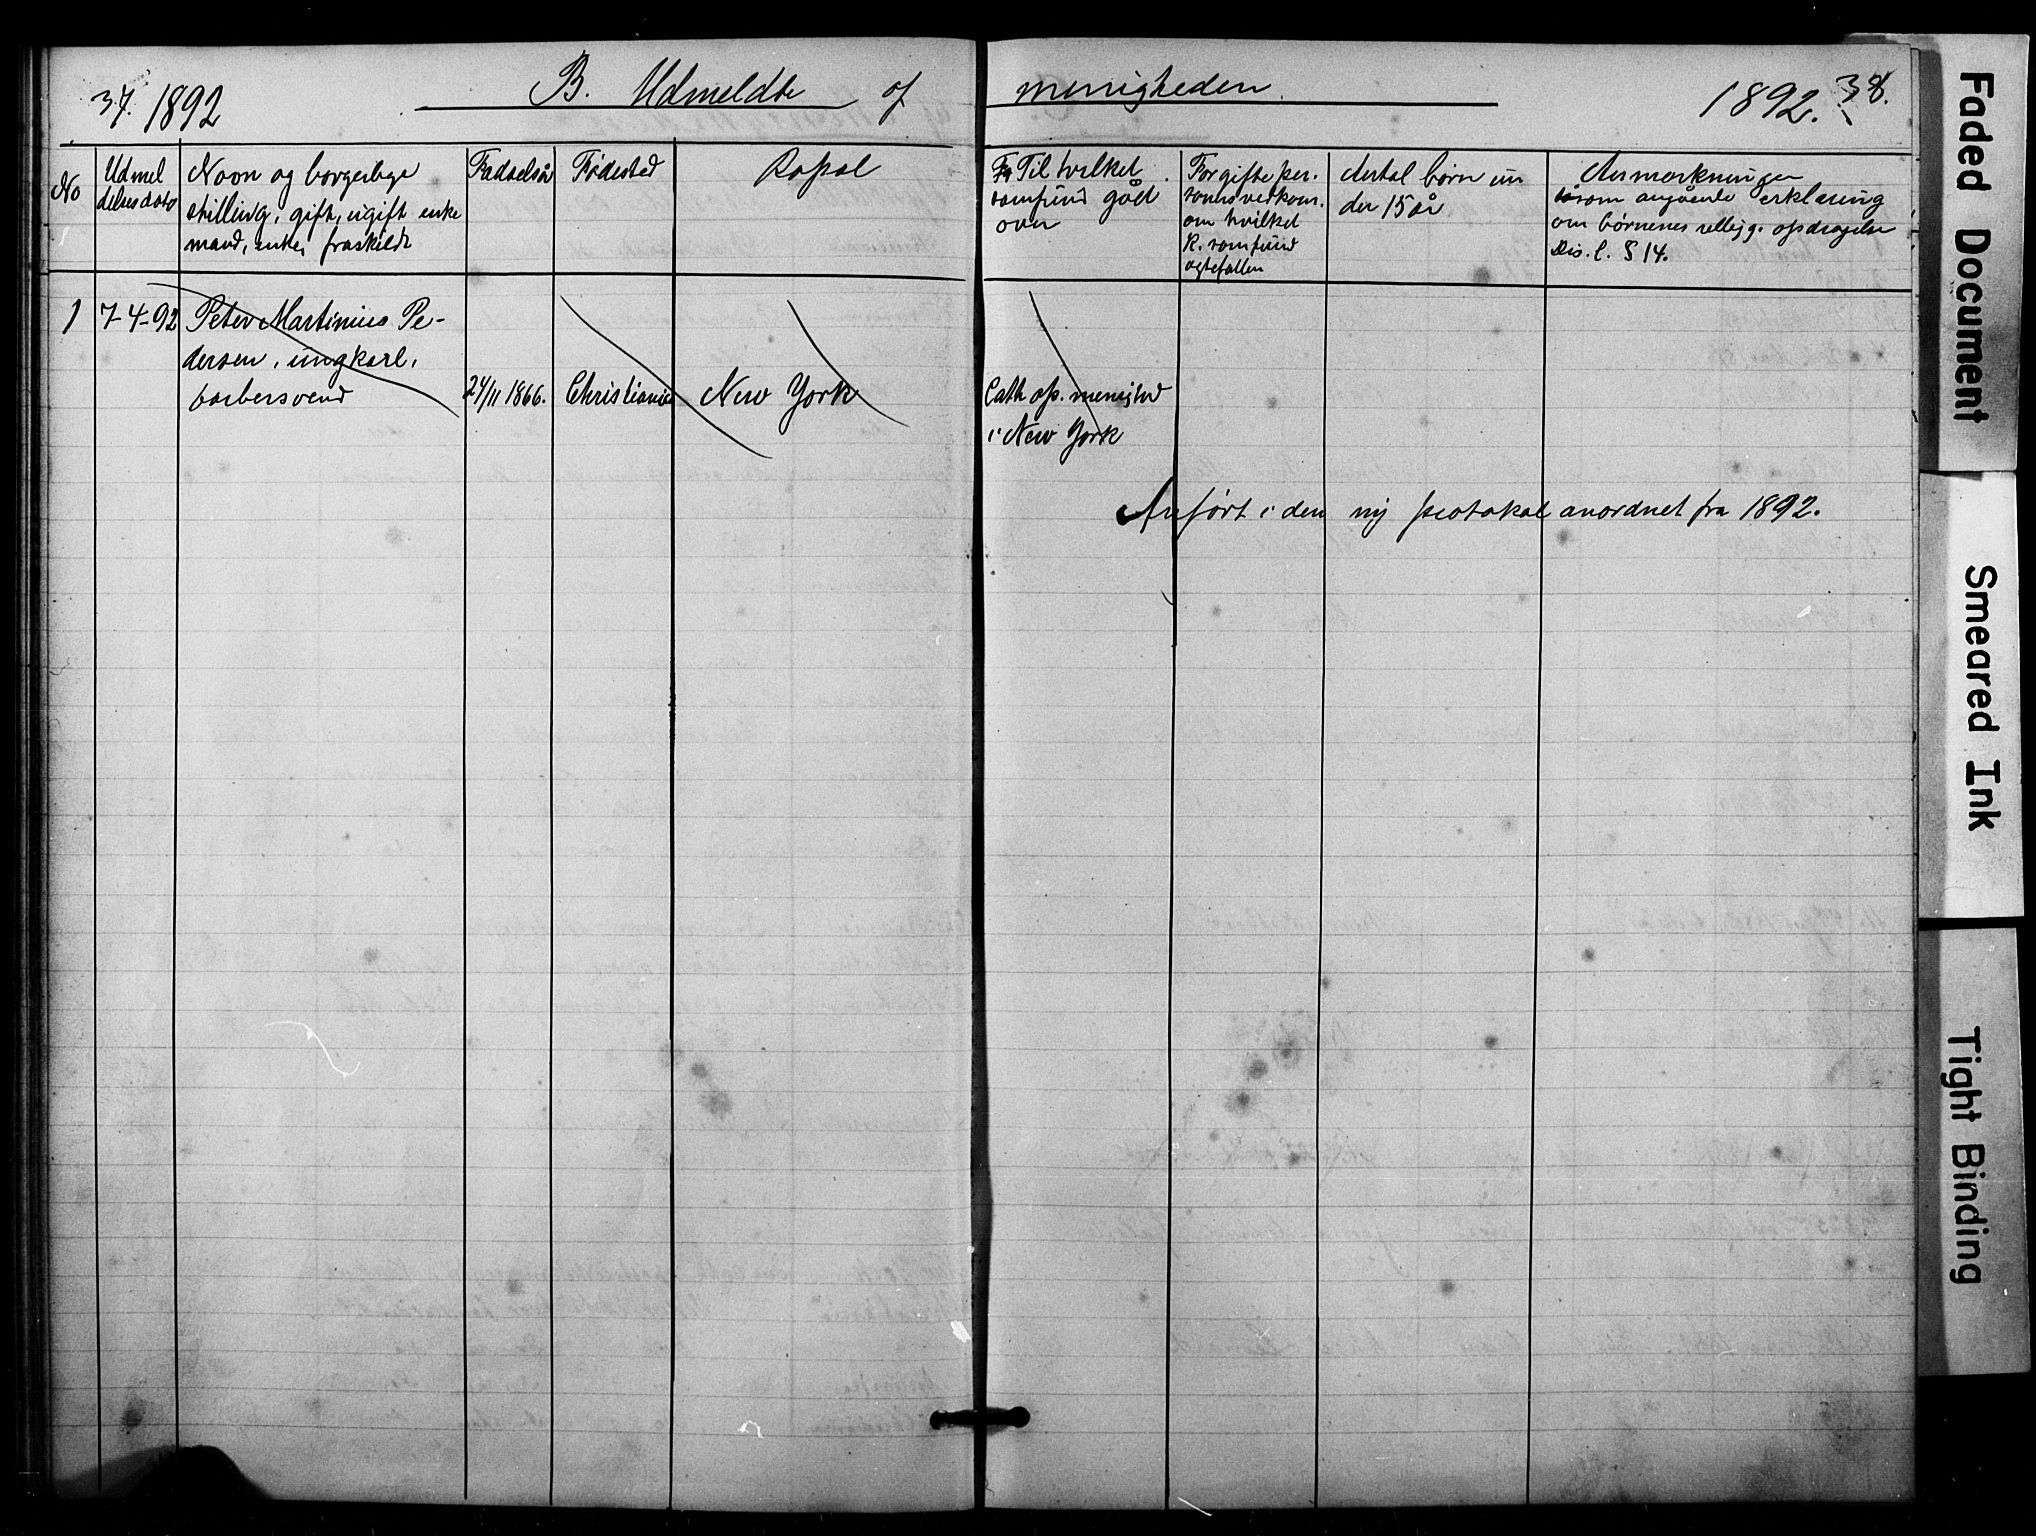 37. 1892
B. Udmeldte af menigheden
1892. 38.
No
Udmel
delsesdato
Navn og borgerlige
stilling, gift, ugift enke
mand, enke, fraskildt
Fødselsår
Fødested
Bopæl
Til hvilket
samfund gået
over
For gifte per-
soners vedkom.
om hvilket
R. samfund
ægtefællen
Antal børn un
der 15 år
Anmærkninger
såsom angående erklæring
om børnenes religg. opdragelse
Dis. l. § 14.
1
7-4-92
Peter Martinius Pe-
dersen, ungkarl,
barbersvend
24/11 1866.
Christiania
New York
Cath. ap. menighed
i New York
Anført i den ny protokol anordnet fra 1892.
Faded Document
Smeared Ink
Tight Binding